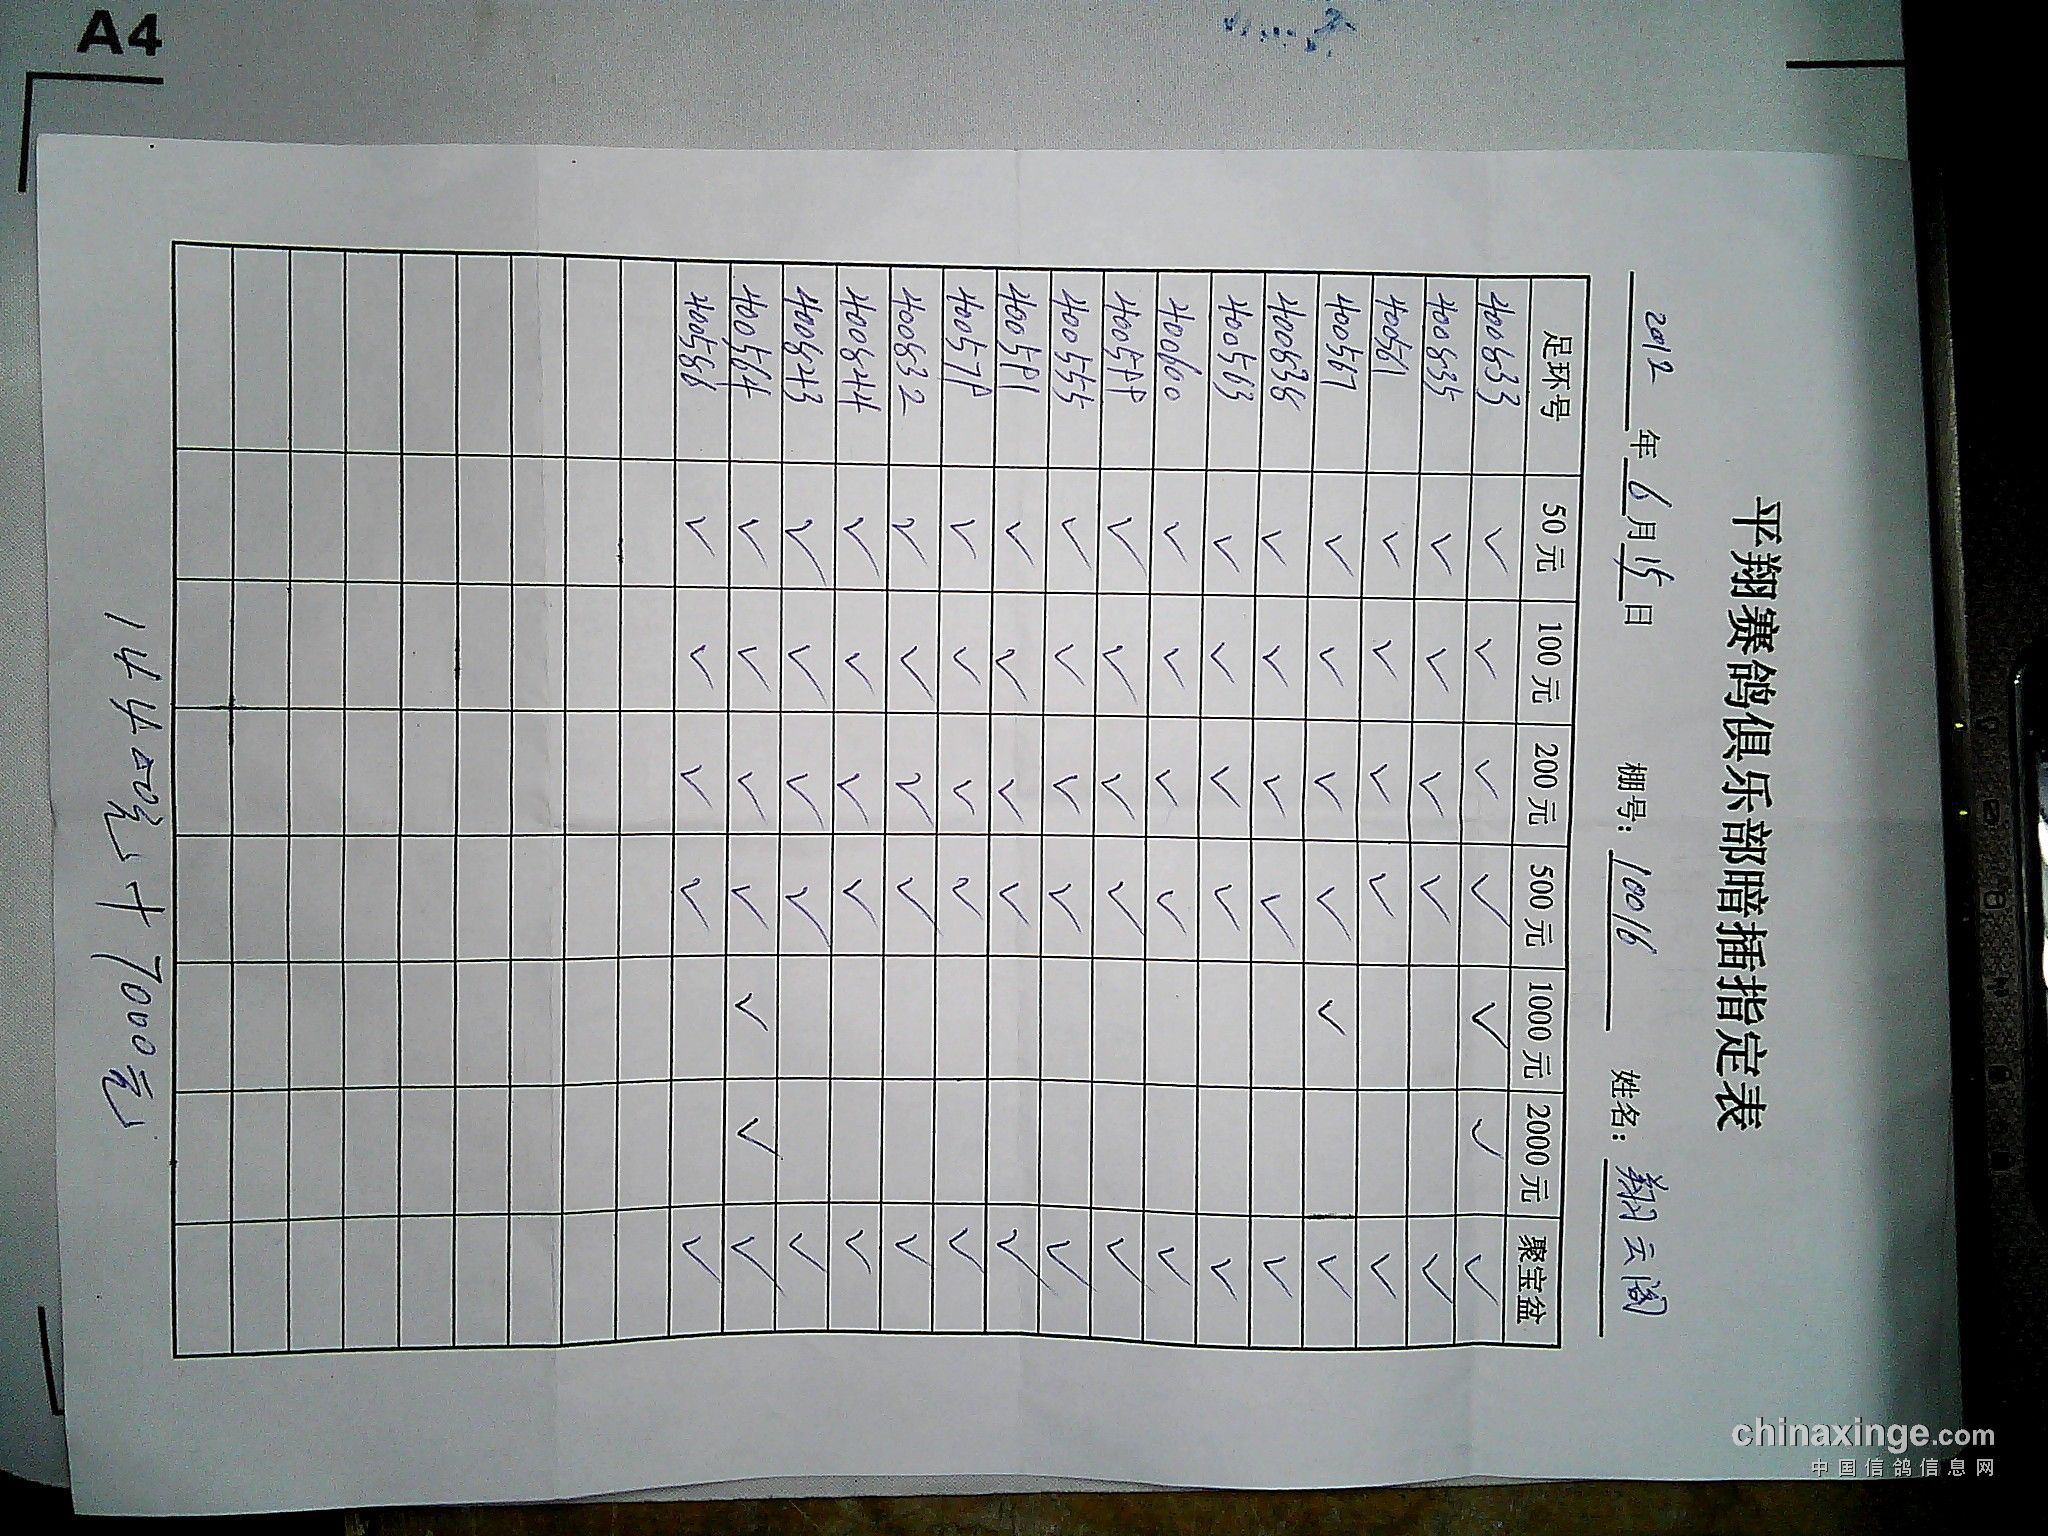 A4
平翔赛鸽俱乐部暗插指定表
2012 年 6 月 15 日 棚号: 10016 姓名: 翔云阁
足环号 50元 100元 200元 500元 1000元 2000元 聚宝盆
400833 ✓ ✓ ✓ ✓ ✓ ✓ ✓
400835 ✓ ✓ ✓ ✓ ✓
400561 ✓ ✓ ✓ ✓ ✓
400567 ✓ ✓ ✓ ✓ ✓ ✓
400836 ✓ ✓ ✓ ✓ ✓
400563 ✓ ✓ ✓ ✓ ✓
400600 ✓ ✓ ✓ ✓ ✓
400599 ✓ ✓ ✓ ✓ ✓
400555 ✓ ✓ ✓ ✓ ✓
400591 ✓ ✓ ✓ ✓ ✓
400579 ✓ ✓ ✓ ✓ ✓
400832 ✓ ✓ ✓ ✓ ✓
400844 ✓ ✓ ✓ ✓ ✓
400843 ✓ ✓ ✓ ✓ ✓
400564 ✓ ✓ ✓ ✓ ✓ ✓ ✓
400586 ✓ ✓ ✓ ✓ ✓
14400元 + 7000元
chinaxinge.com
中国信鸽信息网